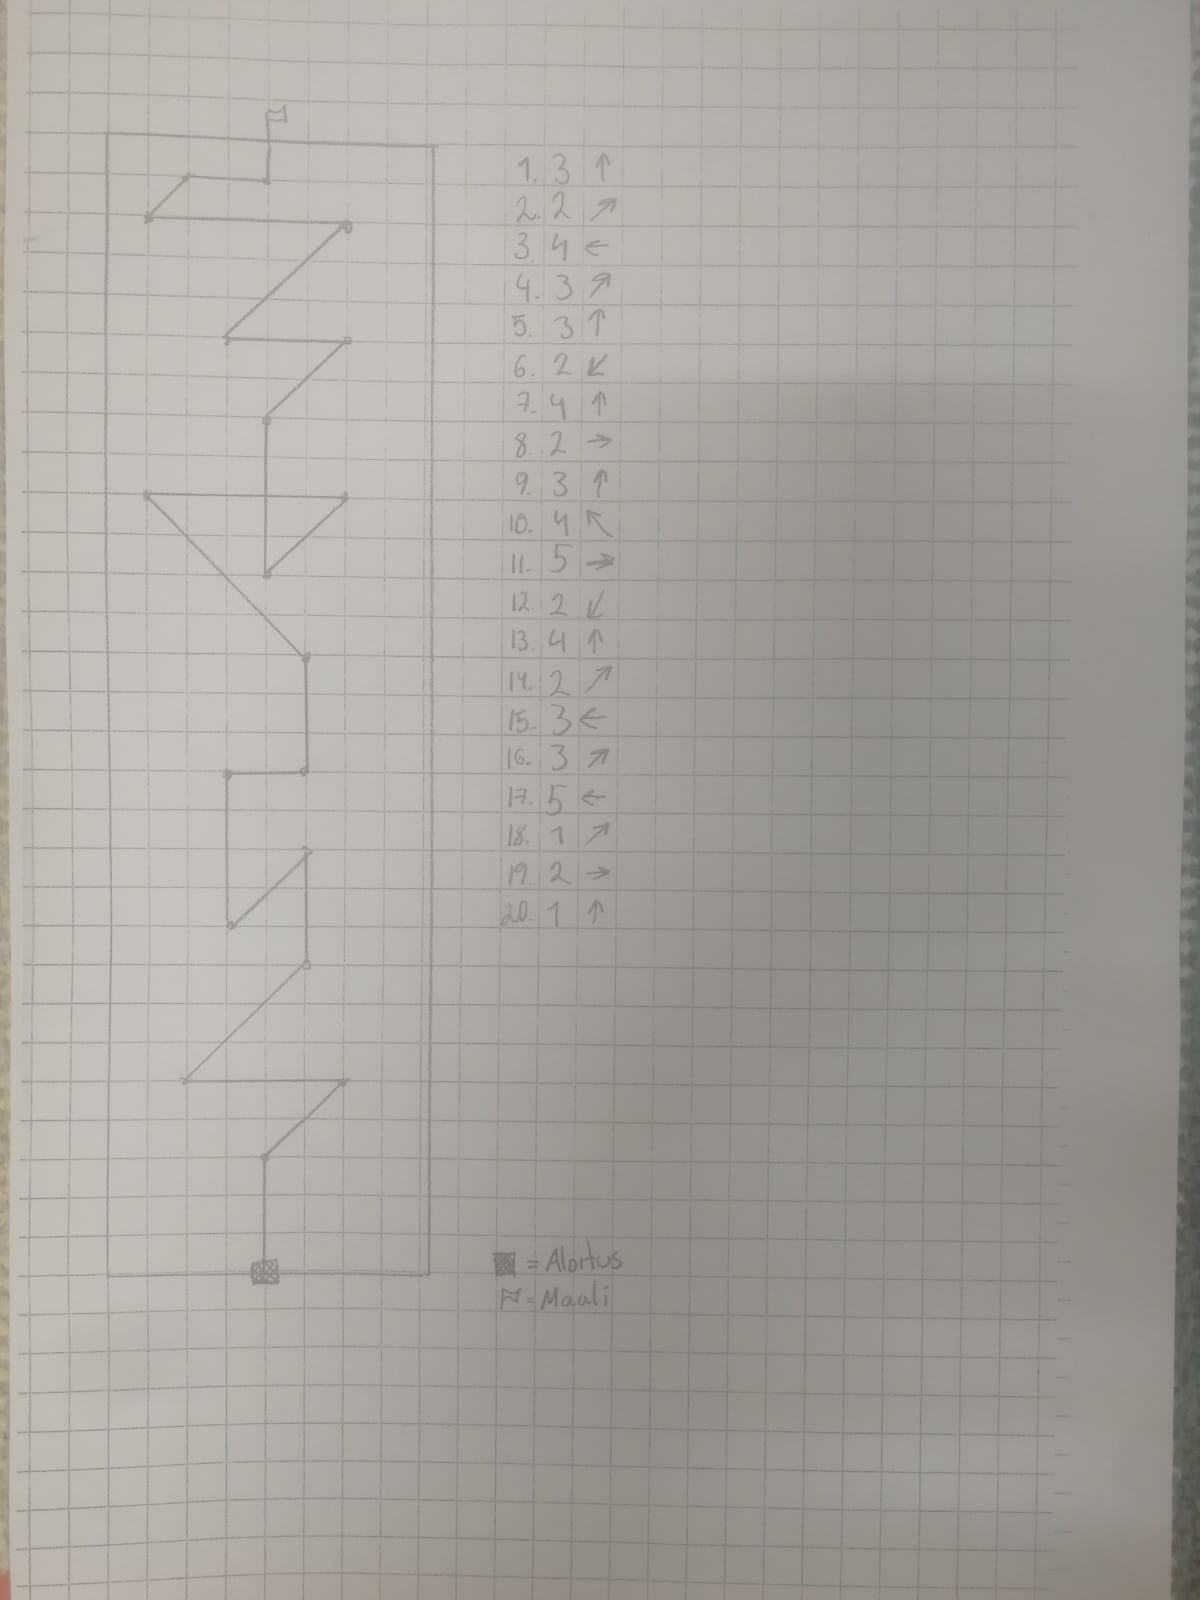 1. 3 ↑
2. 2 ↗
3. 4 ←
4. 3 ↗
5. 3 ↑
6. 2 ↙
7. 4 ↑
8. 2 →
9. 3 ↑
10. 4 ↖
11. 5 →
12. 2 ↙
13. 4 ↑
14. 2 ↗
15. 3 ←
16. 3 ↗
17. 5 ←
18. 1 ↗
19. 2 →
20. 1 ↑
= Aloitus
= Maali